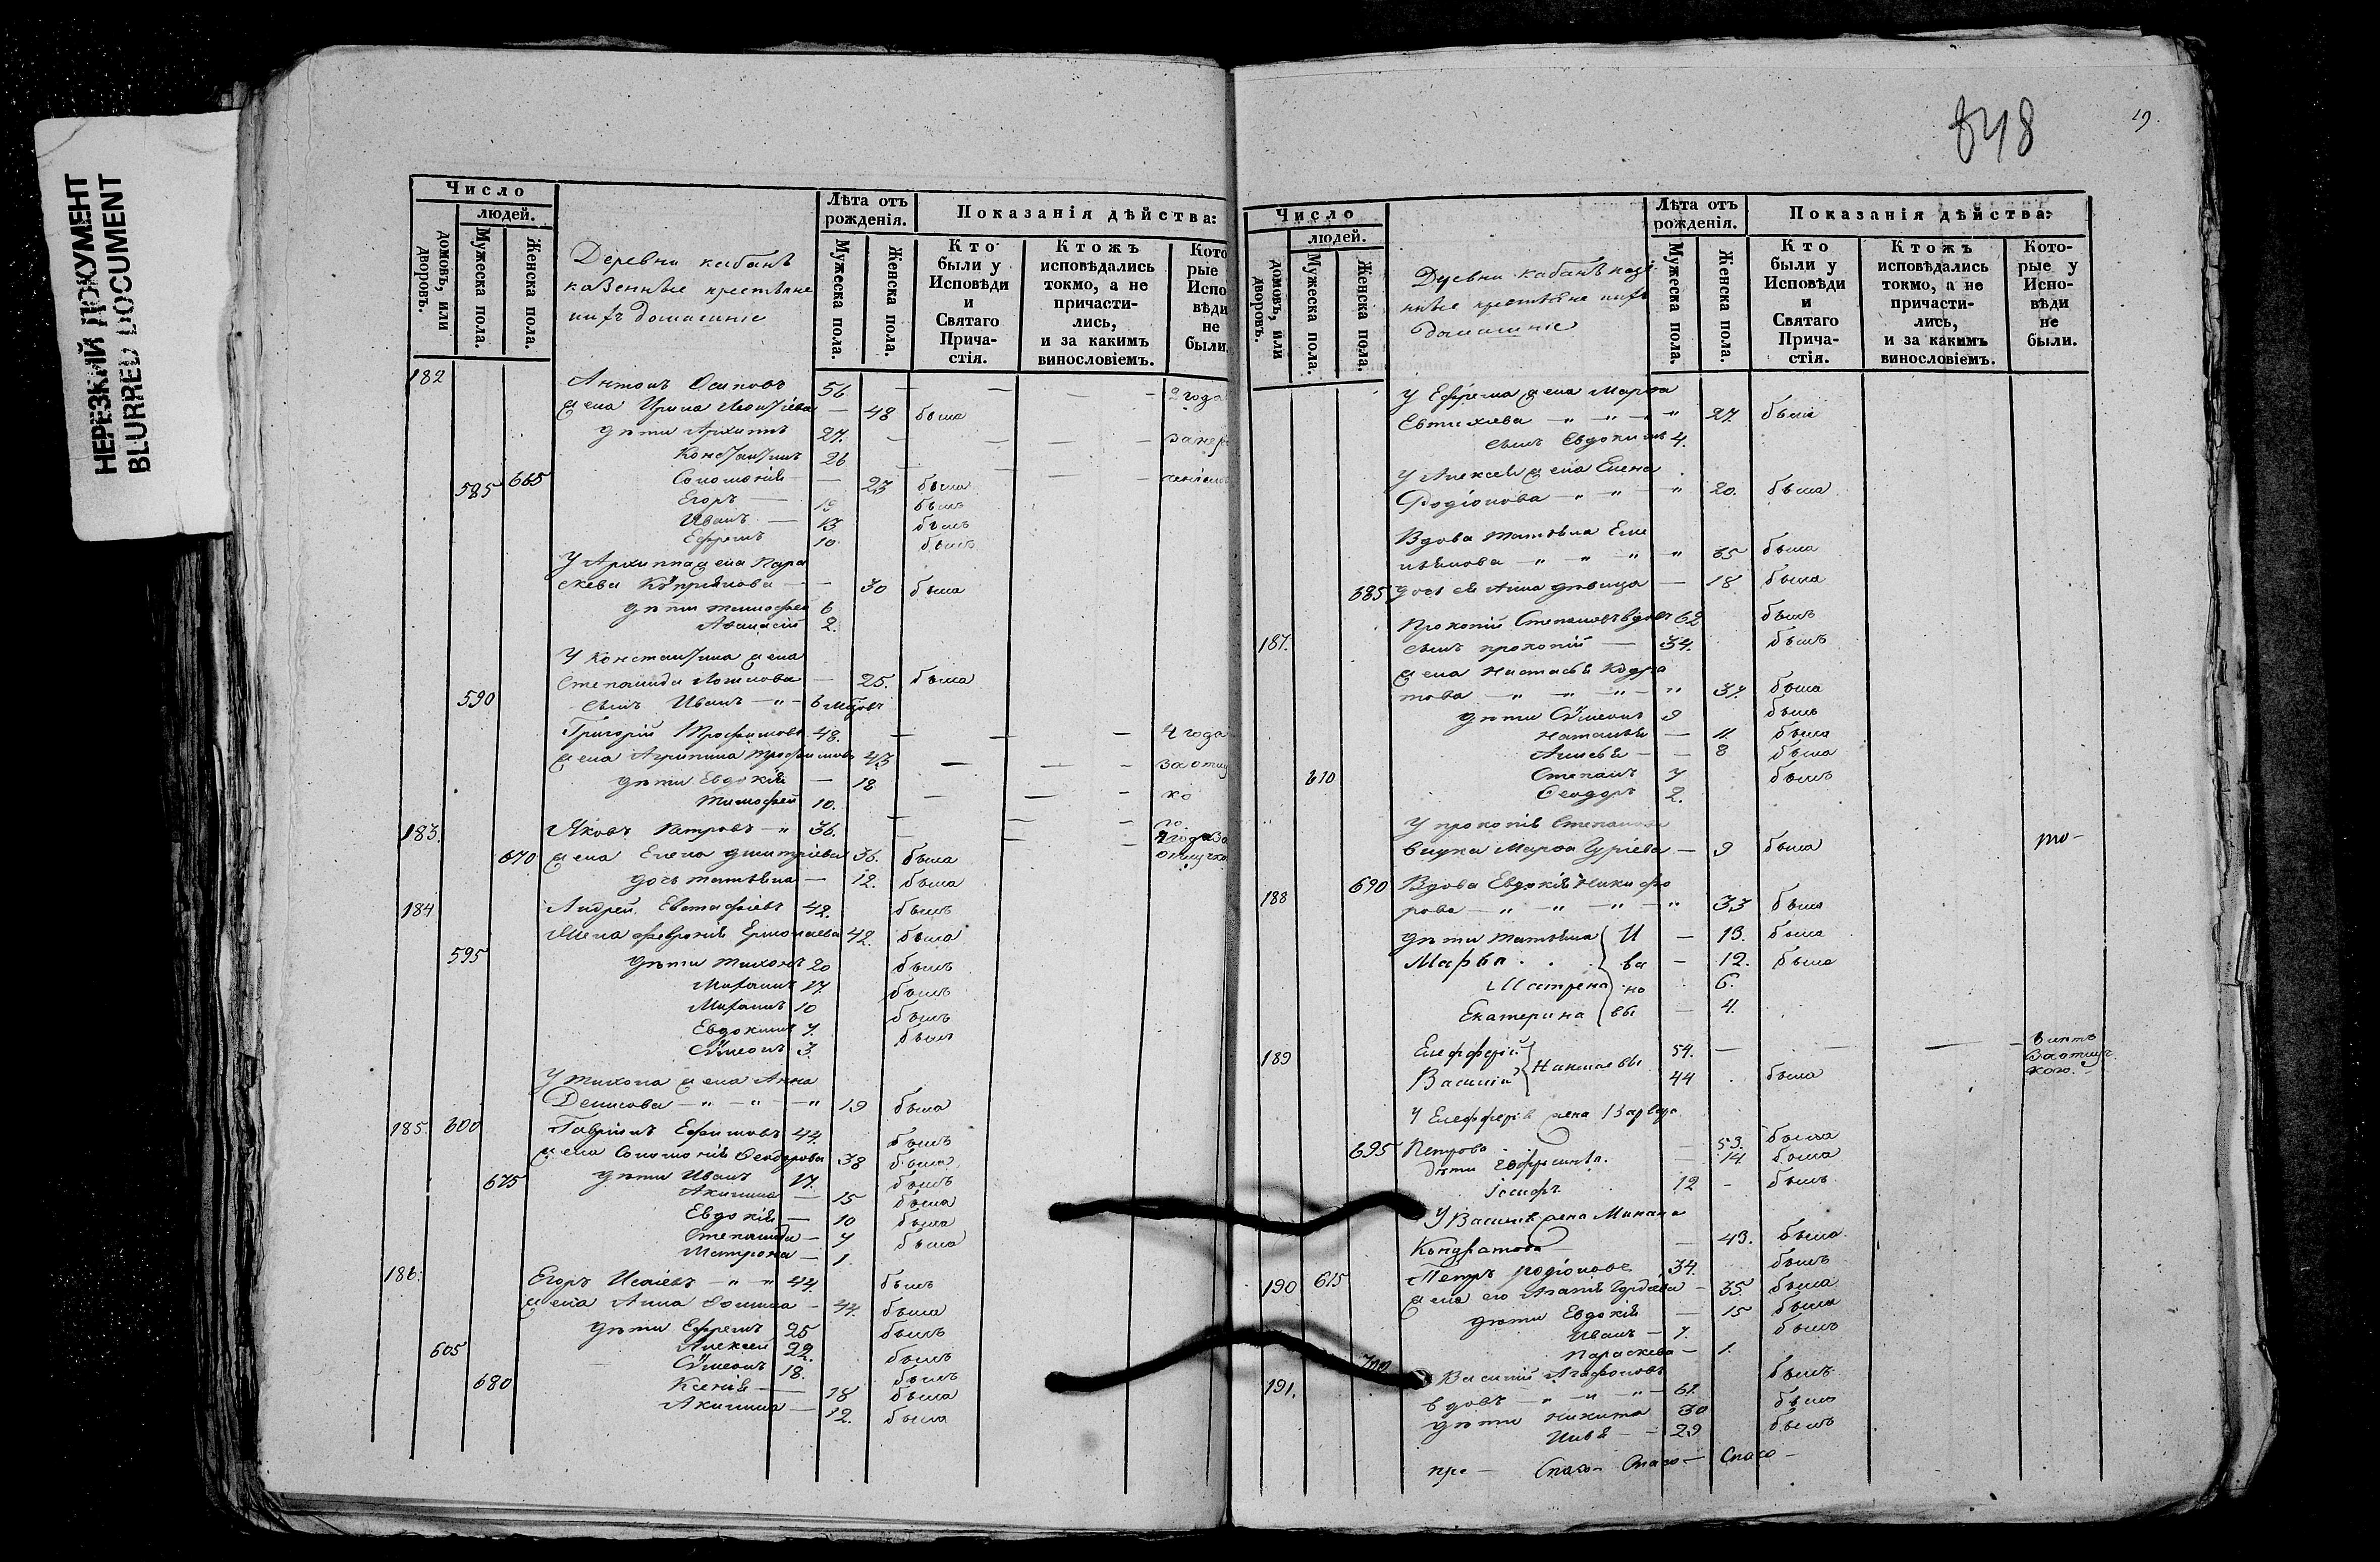 НЕРЕЗКИЙ ДОКУМЕНТ
BLURRED DOCUMENT
Число
людей.
домовъ, или дворовъ.
Мужеска пола.
Женска пола.
Деревни кабанѣ
казенные крестьяне
ихъ домашніе
Лѣта отъ рожденія.
Мужеска пола.
Женска пола.
Показанія дѣйства:
Кто были у Исповѣди и Святаго Прича-стія.
Ктожъ исповѣдались токмо, а не причасти-лись, и за какимъ винословіемъ.
Кото рые Испо вѣди не были.
182 Антонъ Осиповъ 56 — — — 2 года
жена Ирина — 48 была
дѣти Архиппъ 27. — — — —
Константинъ 26 — —
585 665 Соломонія — 23 была
Егоръ — 19 былъ
Иванъ — 13 былъ
Ефремъ 10 былъ
У Архиппа жена Пара
скева Кѵпріянова — — 30 была
дѣти Тимофей 6
Афанасій 2.
У Константина жена
Степанида — 25. была
590 сынъ Иванъ — " — 6
Григорій Трофимовъ 48. — — — 4 года
жена Агрипина 43 — — — за отлу
дѣти Евдокія — 18
Тимофей 10. — — — ко
183. Яковъ Петровъ — " 36. — — —
670 жена Елена Димитріева 36. была
дочь Татьяна — 12. была
184 Андрей Евстафіевъ 42. былъ
жена Февронія Ермолаева 42. была
595 дѣти Тихонъ 20 былъ
Михаилъ 17. былъ
Михаилъ 10 былъ
Евдокимъ 7. былъ
Сѵмеонъ 3.
У Тихона жена Анна
Денисова — " — " — " 19 была
185. 600 Гавріилъ Ефимовъ 44. былъ
жена Соломонія Феодорова 38 была
675 дѣти Иванъ 17. былъ
Акилина — 15 была
Евдокія — 10 была
Степанида — 7 была
Матрона — 1.
186. Егоръ Исаіевъ — " — " 44. былъ
жена Анна Фомина — 44. была
дѣти Ефремъ 25 былъ
605 Алексей 22. былъ
Сѵмеонъ 18. былъ
680 Ксенія — 18 была
Акилина — 12. была
848
19.
Число
людей.
домовъ, или дворовъ.
Мужеска пола.
Женска пола.
Деревни кабанѣ казе
нные крестьяне ихъ
домашніе
Лѣта отъ рожденія.
Мужеска пола.
Женска пола.
Показанія дѣйства:
Кто были у Исповѣди и Святаго Прича-стія.
Ктожъ исповѣдались токмо, а не причасти-лись, и за какимъ винословіемъ.
Кото-рые у Испо-вѣди не были.
У Ефрема жена Марфа
Евтихіева — " — " — " 27. была
сынъ Евдокимъ 4.
У Алексея жена Елена
Родіонова — " — " — " 20. была
Вдова Татьяна Еме
льянова — " " " " 35 была
685 дочь ея Анна дѣвица — 18 была
187. Прокопій Степановъ вдовъ 62 былъ
сынъ Прокопій — 34. былъ
жена Настасья Кодра
това — " — " — " — " 37. была
дѣти Сѵмеонъ 9 былъ
Наталья — 11 была
— — 8 была
610 Степанъ 7 былъ
Феодоръ 2.
У Прокопія Степанова
внука Марфа Гуріева — 9 была
188 690 Вдова Евдокія Никифо
рова — " — " — " — " 33 была
дѣти Татьяна И — 13. была
Марѳа . . . ва — 12. была
Матрена но . 6.
Екатерина вы — 4.
189 Елефферій 54. — — — — 3 лѣтъ
Василій 44 . была за отлуч
кою.
У Елефферія жена Варвара
695 Петрова — 53. была
дѣти Ефросинія. — 14. была
Іосифъ 12 — былъ
У Василія жена
Кондратова — 43. была
190 615 Петръ Родіоновъ 34. былъ
жена его — 35. была
дѣти Евдокія — 15 была
Иванъ — 7. былъ
700 Параскева — 1.
191. Василій Агафоновъ былъ
вдовъ — " — " " — 61.
дѣти Никита 30 былъ
Илья — — 29 былъ
пре — Спасо — Спасо — Спасо —